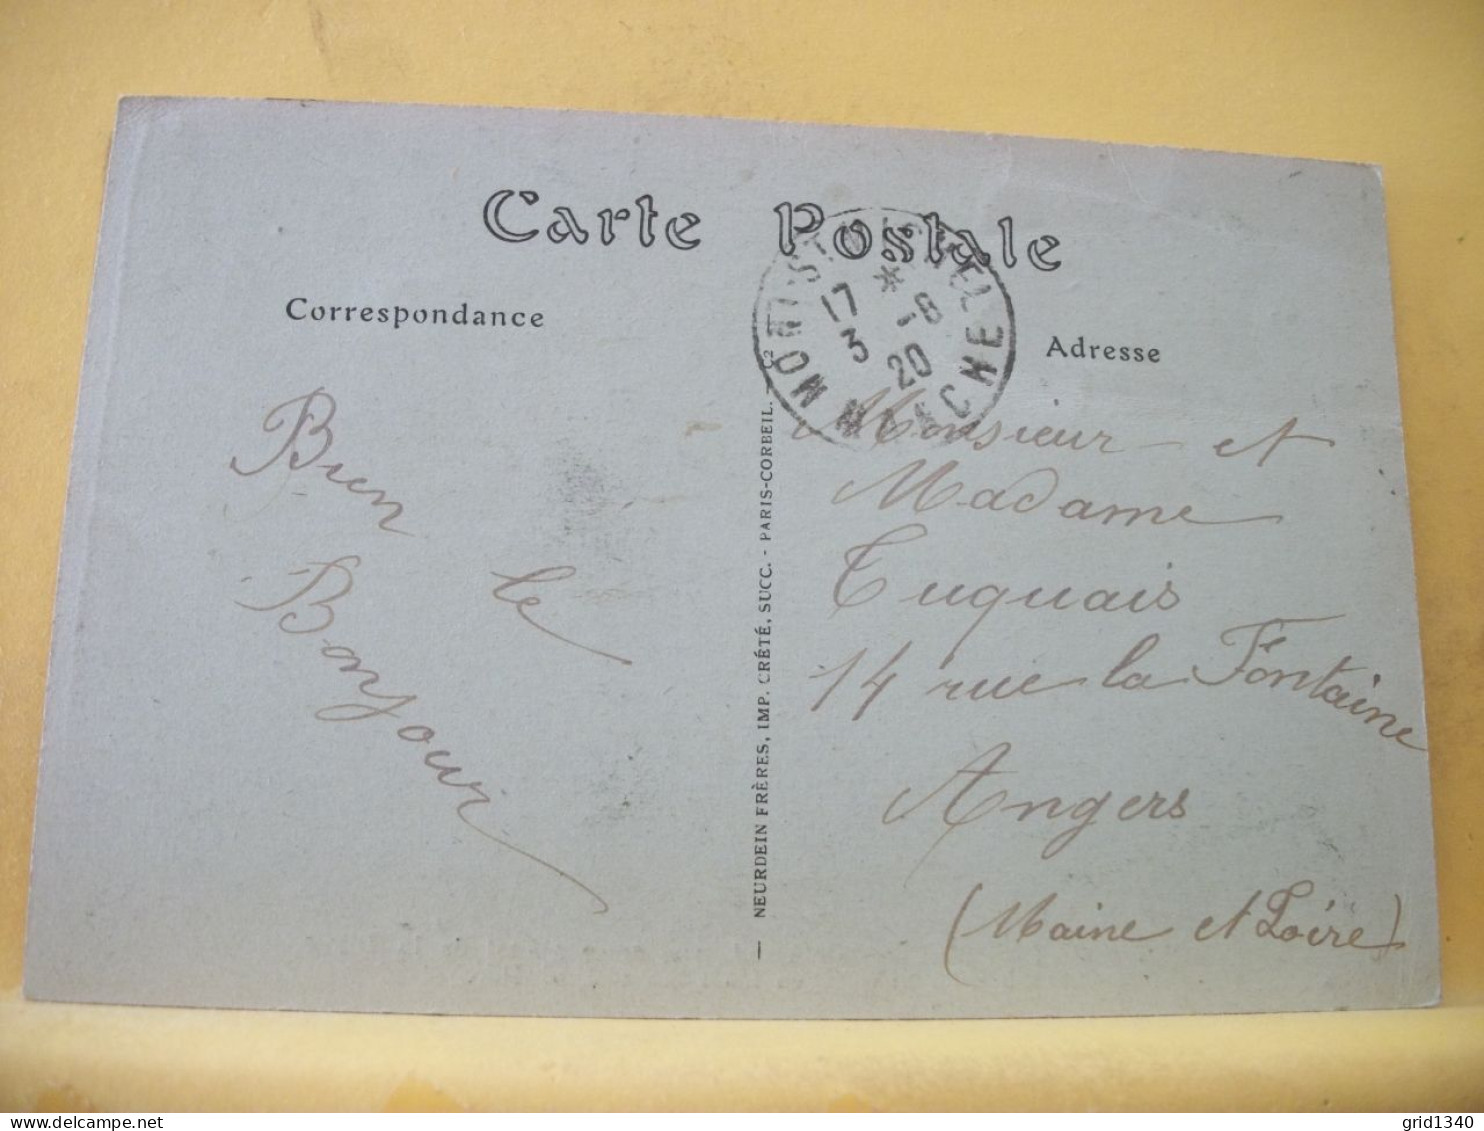 Carte Postale
Correspondance
Adresse
MONT ST MICHEL
17 * -6
3 20
MANCHE
Bien
le
Bonjour
NEURDEIN FRÈRES, IMP. CRÉTÉ, SUCC. - PARIS-CORBEIL. — C2
Monsieur et
Madame
Tuquais
14 rue la Fontaine
Angers
(Maine et Loire)
delcampe.net
grid1340